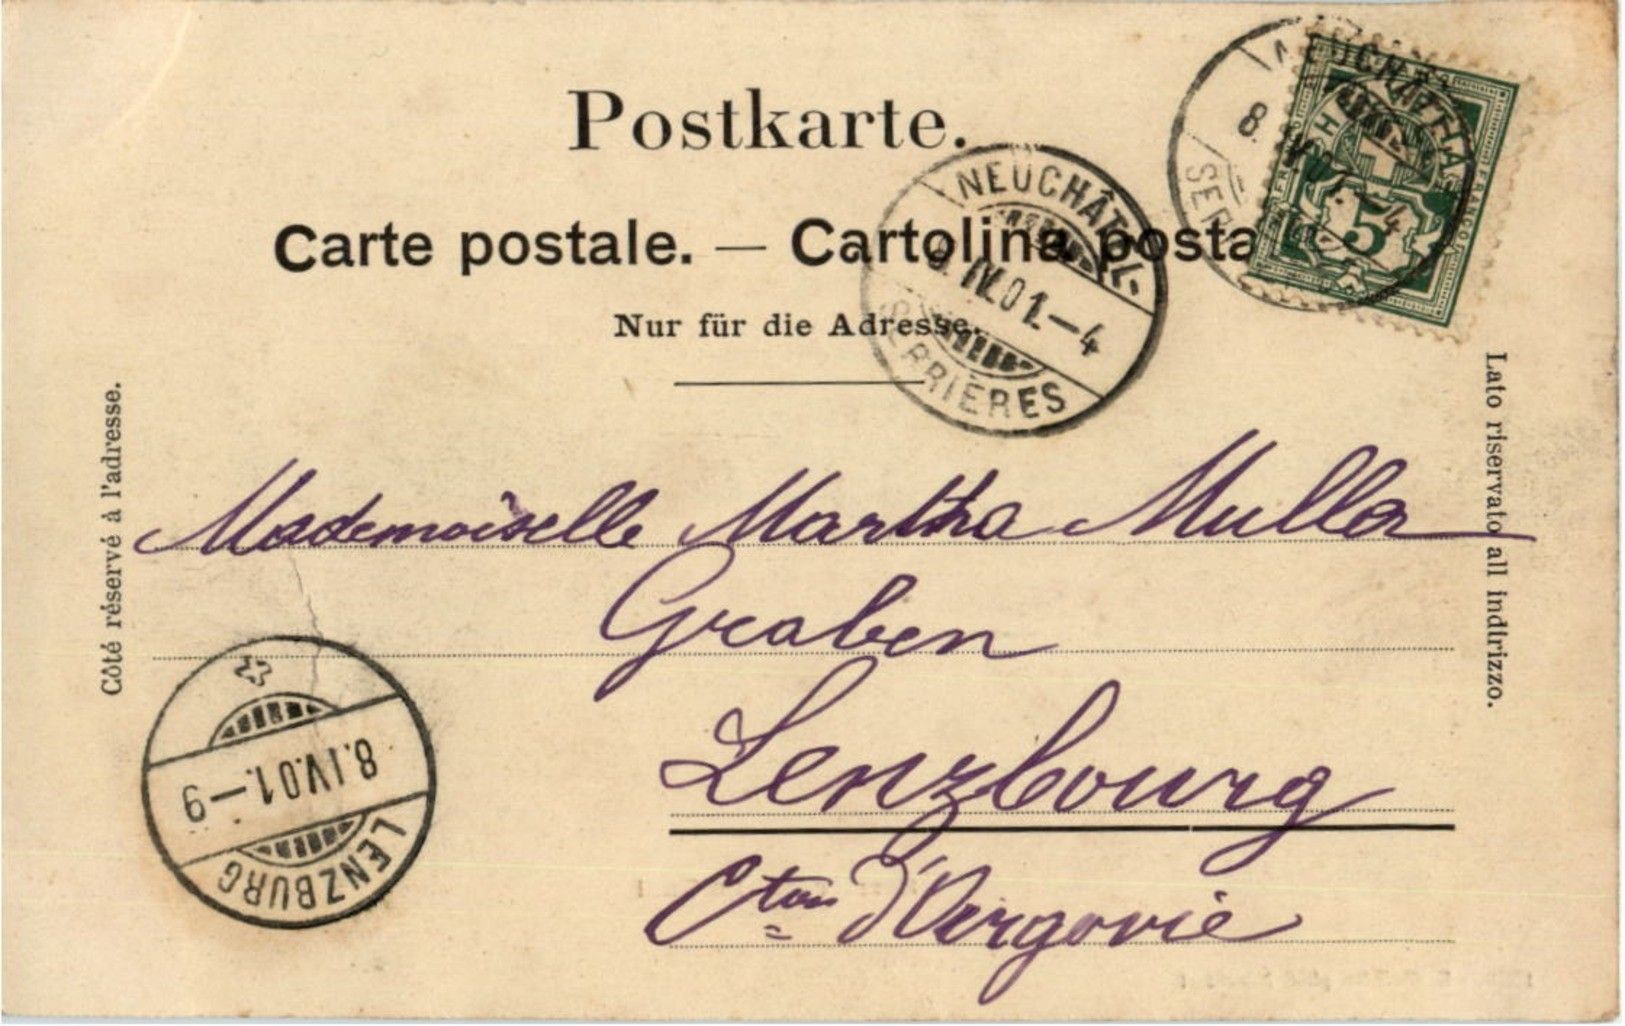 Postkarte.
Carte postale. — Cartolina posta
Nur für die Adresse.
Côté réservé à l'adresse.
Lato riservato all indirizzo.
NEUCHÂTEL-
8. IV.01.–4
SERRIÈRES
NEUCHÂTEL
8. IV.01.–4
SER
FRANCO
5
Mademoiselle Martha Muller
Graben
Lenzbourg
Cton d'Argovie
8.IV.01.–9
LENZBURG